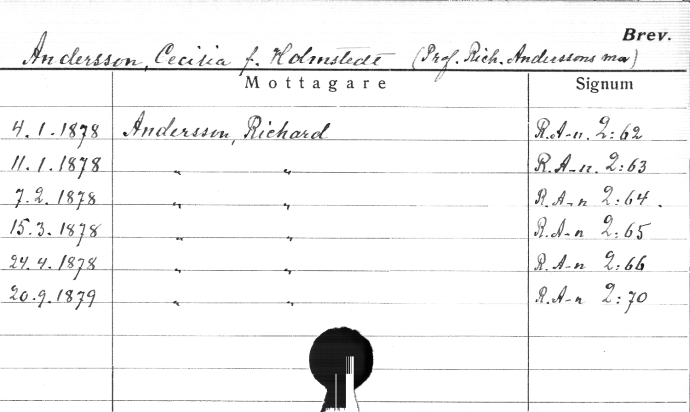 Brev.
Andersson, Cecilia f. Holmstedt (Prof. Rich. Anderssons mor)
Mottagare Signum
4.1.1878 Andersson, Richard R.A-n. 2:62
11.1.1878 " " R.A-n. 2:63
7.2.1878 " " R.A-n 2:64.
15.3.1878 " " R.A-n 2:65
24.4.1878 " " R.A-n 2:66
20.9.1879 " " R.A-n 2:70